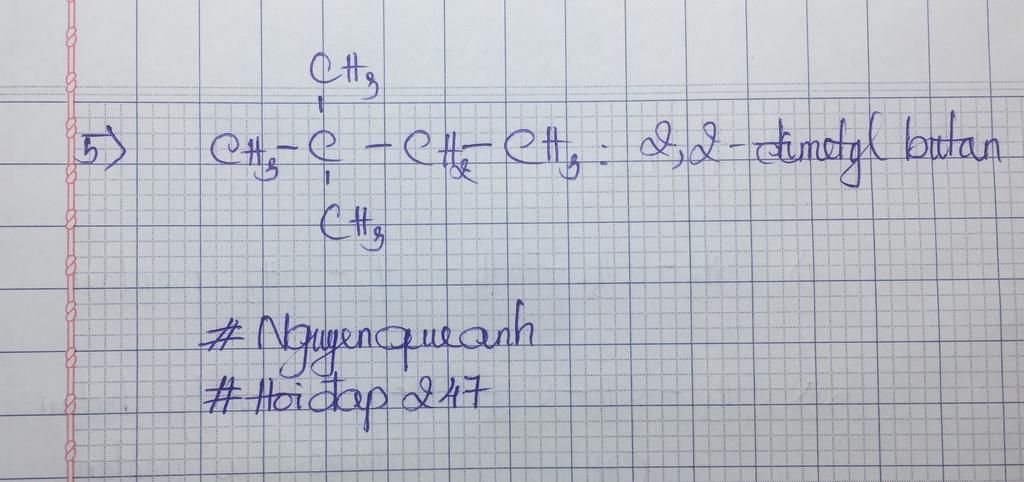 CH3
5) CH3 - C - CH2 - CH3 : 2,2 - đimetyl butan
CH3
# Nguyenqueanh
# Hoidap 247